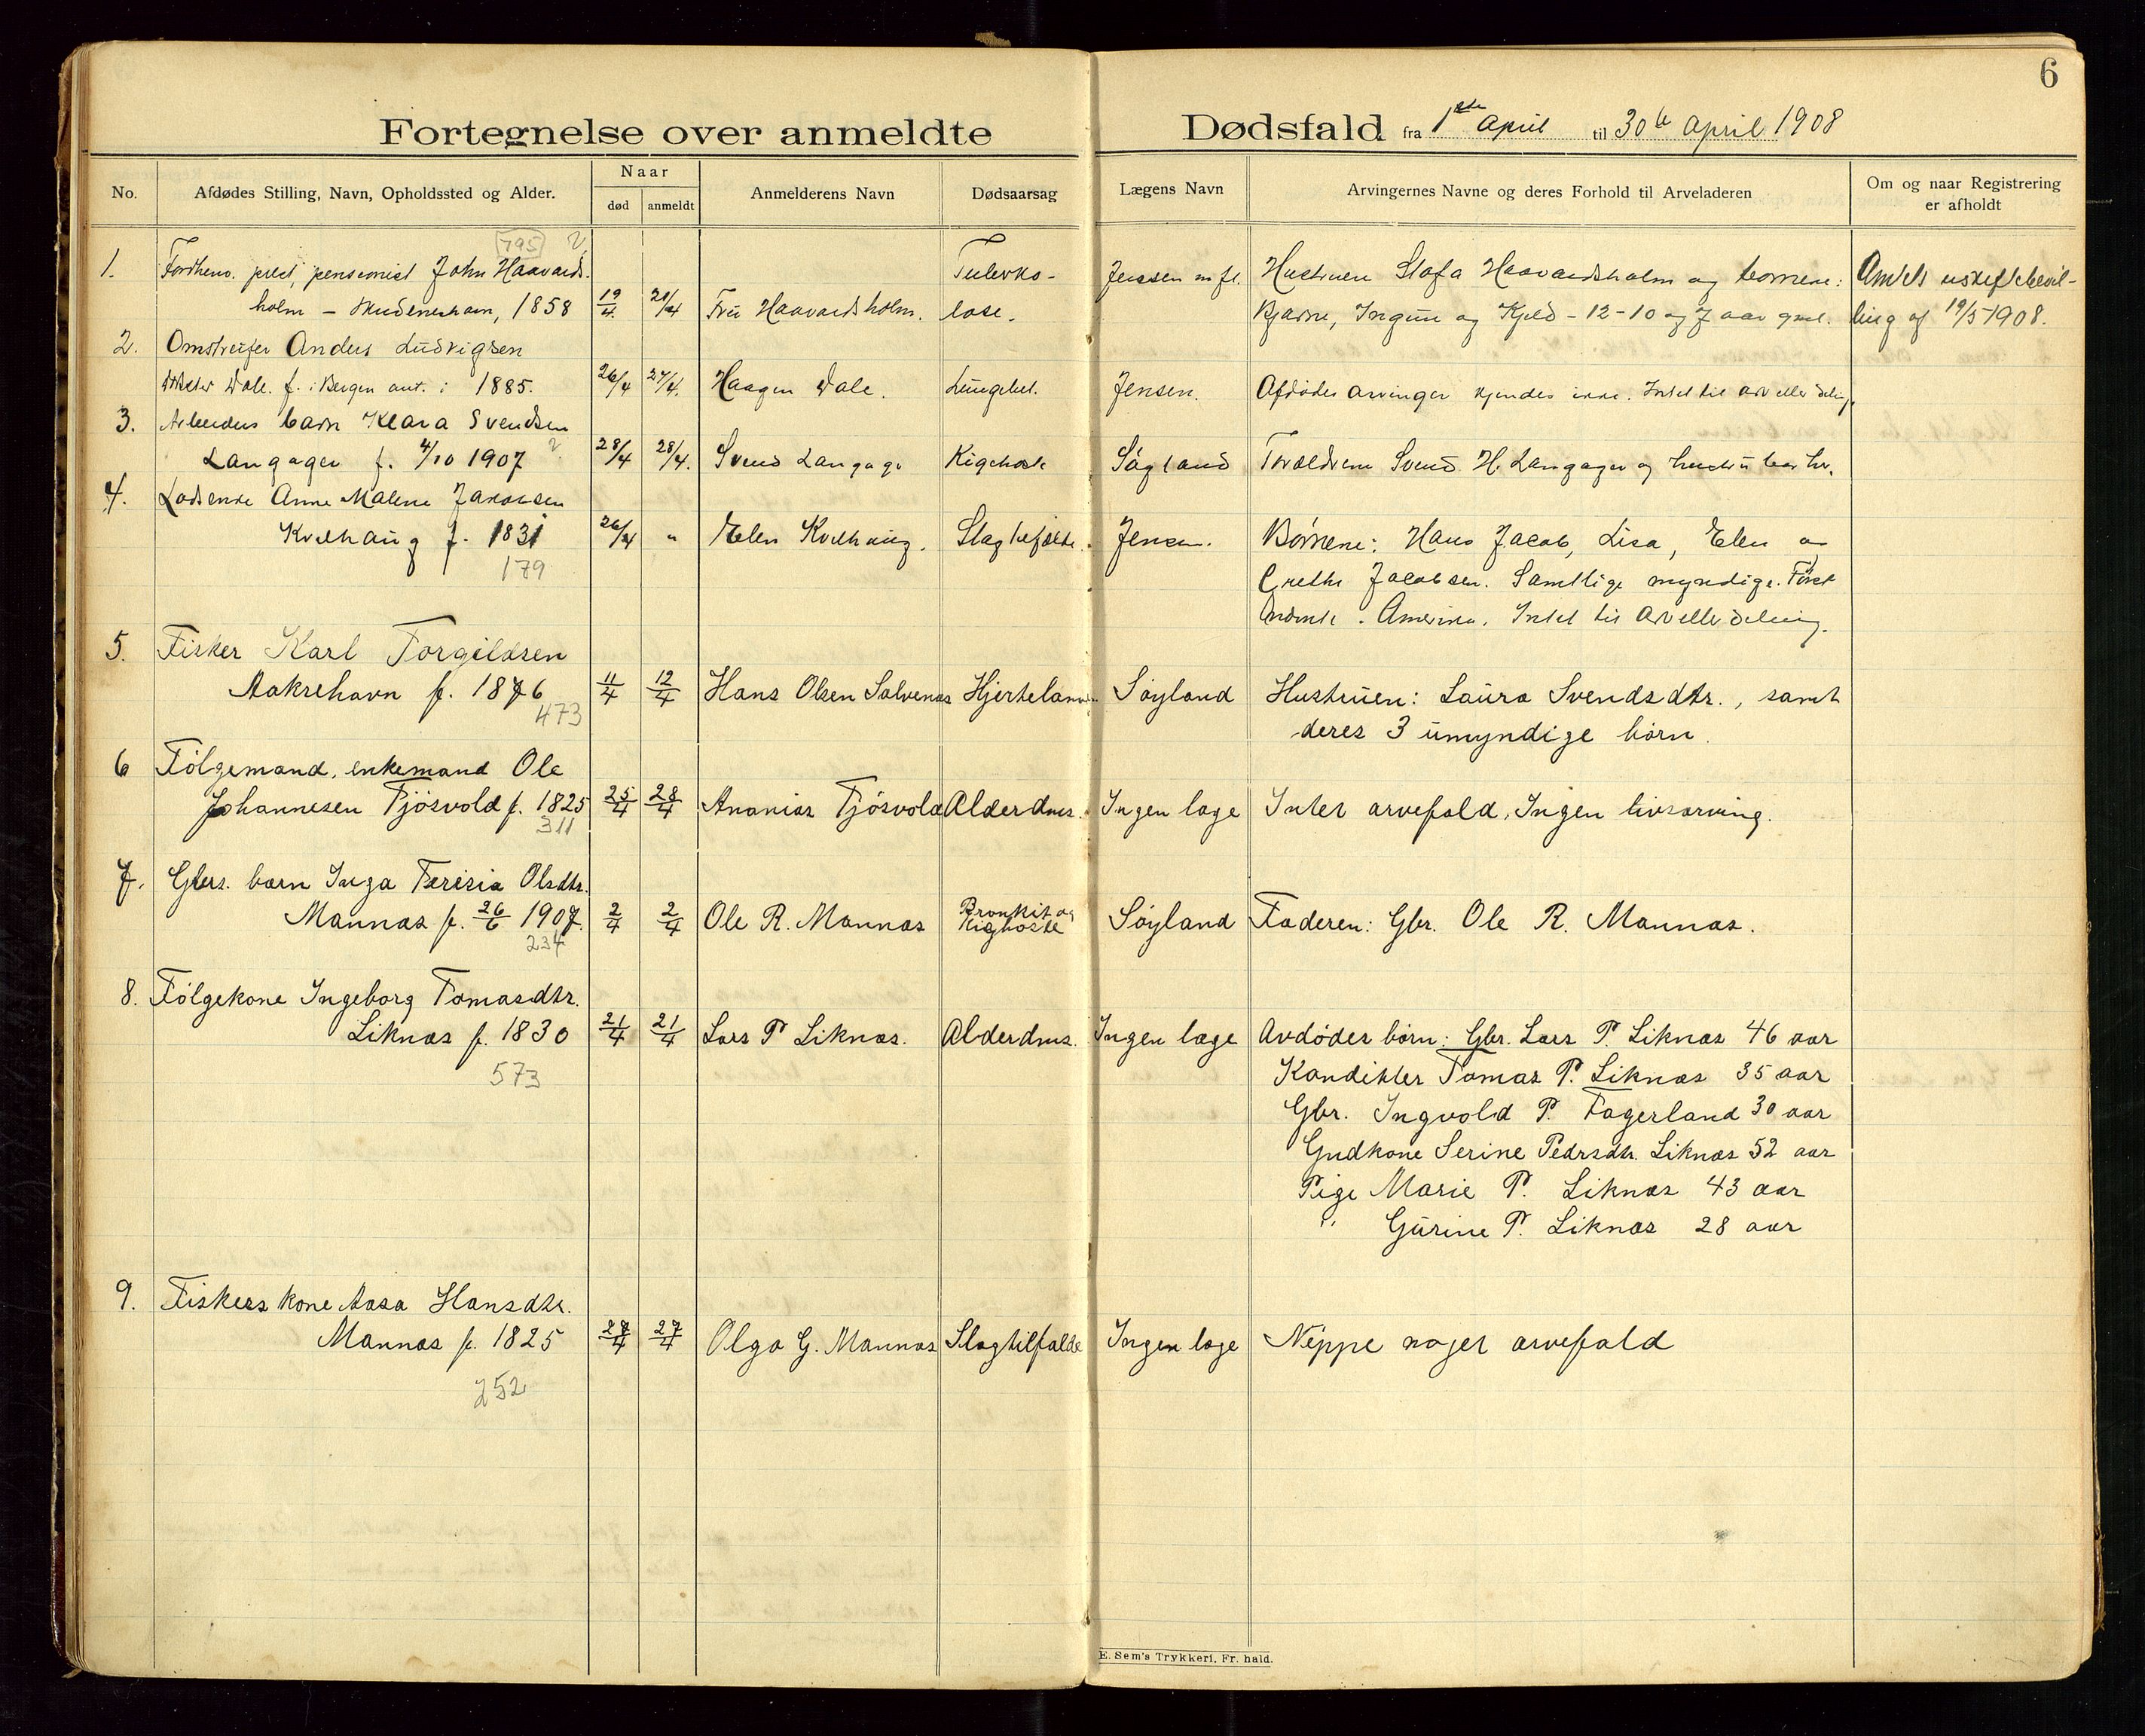 6
Fortegnelse over anmeldte Dødsfald fra 1ste April til 30te April 1908
No. Afdødes Stilling, Navn, Opholdssted og Alder. Naar Anmelderens Navn Dødsaarsag Lægens Navn Arvingernes Navne og deres Forhold til Arveladeren Om og naar Registrering
død anmeldt er afholdt
795
1. Fordhenv. prest, pensionist John Haavards- Tuberko- Jenssen m fl. Hustruen Olafa Haavardsholm og børnene: Amtets uskiftebevil-
holm – Skudeneshavn, 1858 19/4 21/4 Fru Haavardsholm. lose. Bjarne, Ingun og Kjeld – 12-10 og 7 aar gml. ling af 19/5 1908.
2. Omstreifer Anders Ludvigsen
Dale. f. i Bergen ant. i 1885. 26/4 27/4. Haagen Dale. Lungebet. Jensen. Afdødes arvinger kjendes ikke. Intet til arv eller deling.
3. Arbeiders barn Klara Svendsen
Langager f. 4/10 1907 28/4 28/4. Svend Langager Kighoste Søyland Forældrene Svend H. Langager og hustru
4. Lodsenke Anne Malene Jakobsen
Kvelhaug f. 1831 26/4 " Elen Kvelhaug. Slagtilfælde. Jensen. Børnene: Hans Jacob, Lisa, Elen og
179 Grethe Jacobsen. Samtlige myndige. Først
nævnte i Amerika. Intet til arv eller deling.
5. Fisker Karl Torgildsen
Aakrehavn f. 1876 11/4 12/4 Hans Olsen Salvenes Hjertelam. Søyland Hustruen: Laura Svendsdtr., samt
473 deres 3 umyndige børn.
6 Følgemand, enkemand Ole
Johannesen Tjøsvold f. 1825 25/4 28/4 Ananias Tjøsvold Alderdms. Ingen læge Intet arvefald, Ingen livsarving.
311
7. Gbrs. barn Inga Teresia Olsdtr.
Mannæs f. 26/6 1907. 2/4 2/4 Ole R. Mannæs Bronkit og Kighoste Søyland Faderen: Gbr. Ole R. Mannæs.
234
8. Følgekone Ingeborg Tomasdtr.
Liknæs f. 1830 21/4 21/4 Lars P Liknæs. Alderdms. Ingen læge Avdødes børn: Gbr. Lars P. Liknæs 46 aar
573 Kandidter Tomas P. Liknæs 35 aar
Gbr. Ingvold P. Fagerland 30 aar
Gudkone Serine Pedrsdtr. Liknæs 52 aar
Pige Marie P. Liknæs 43 aar
" Gurine P. Liknæs 28 aar
9. Fiskers kone Aasa Hansdtr.
Mannæs f. 1825 27/4 27/4 Olga G. Mannæs Slagtilfælde Ingen læge Neppe noget arvefald
252
E. Sem's Trykkeri, Fr. hald.